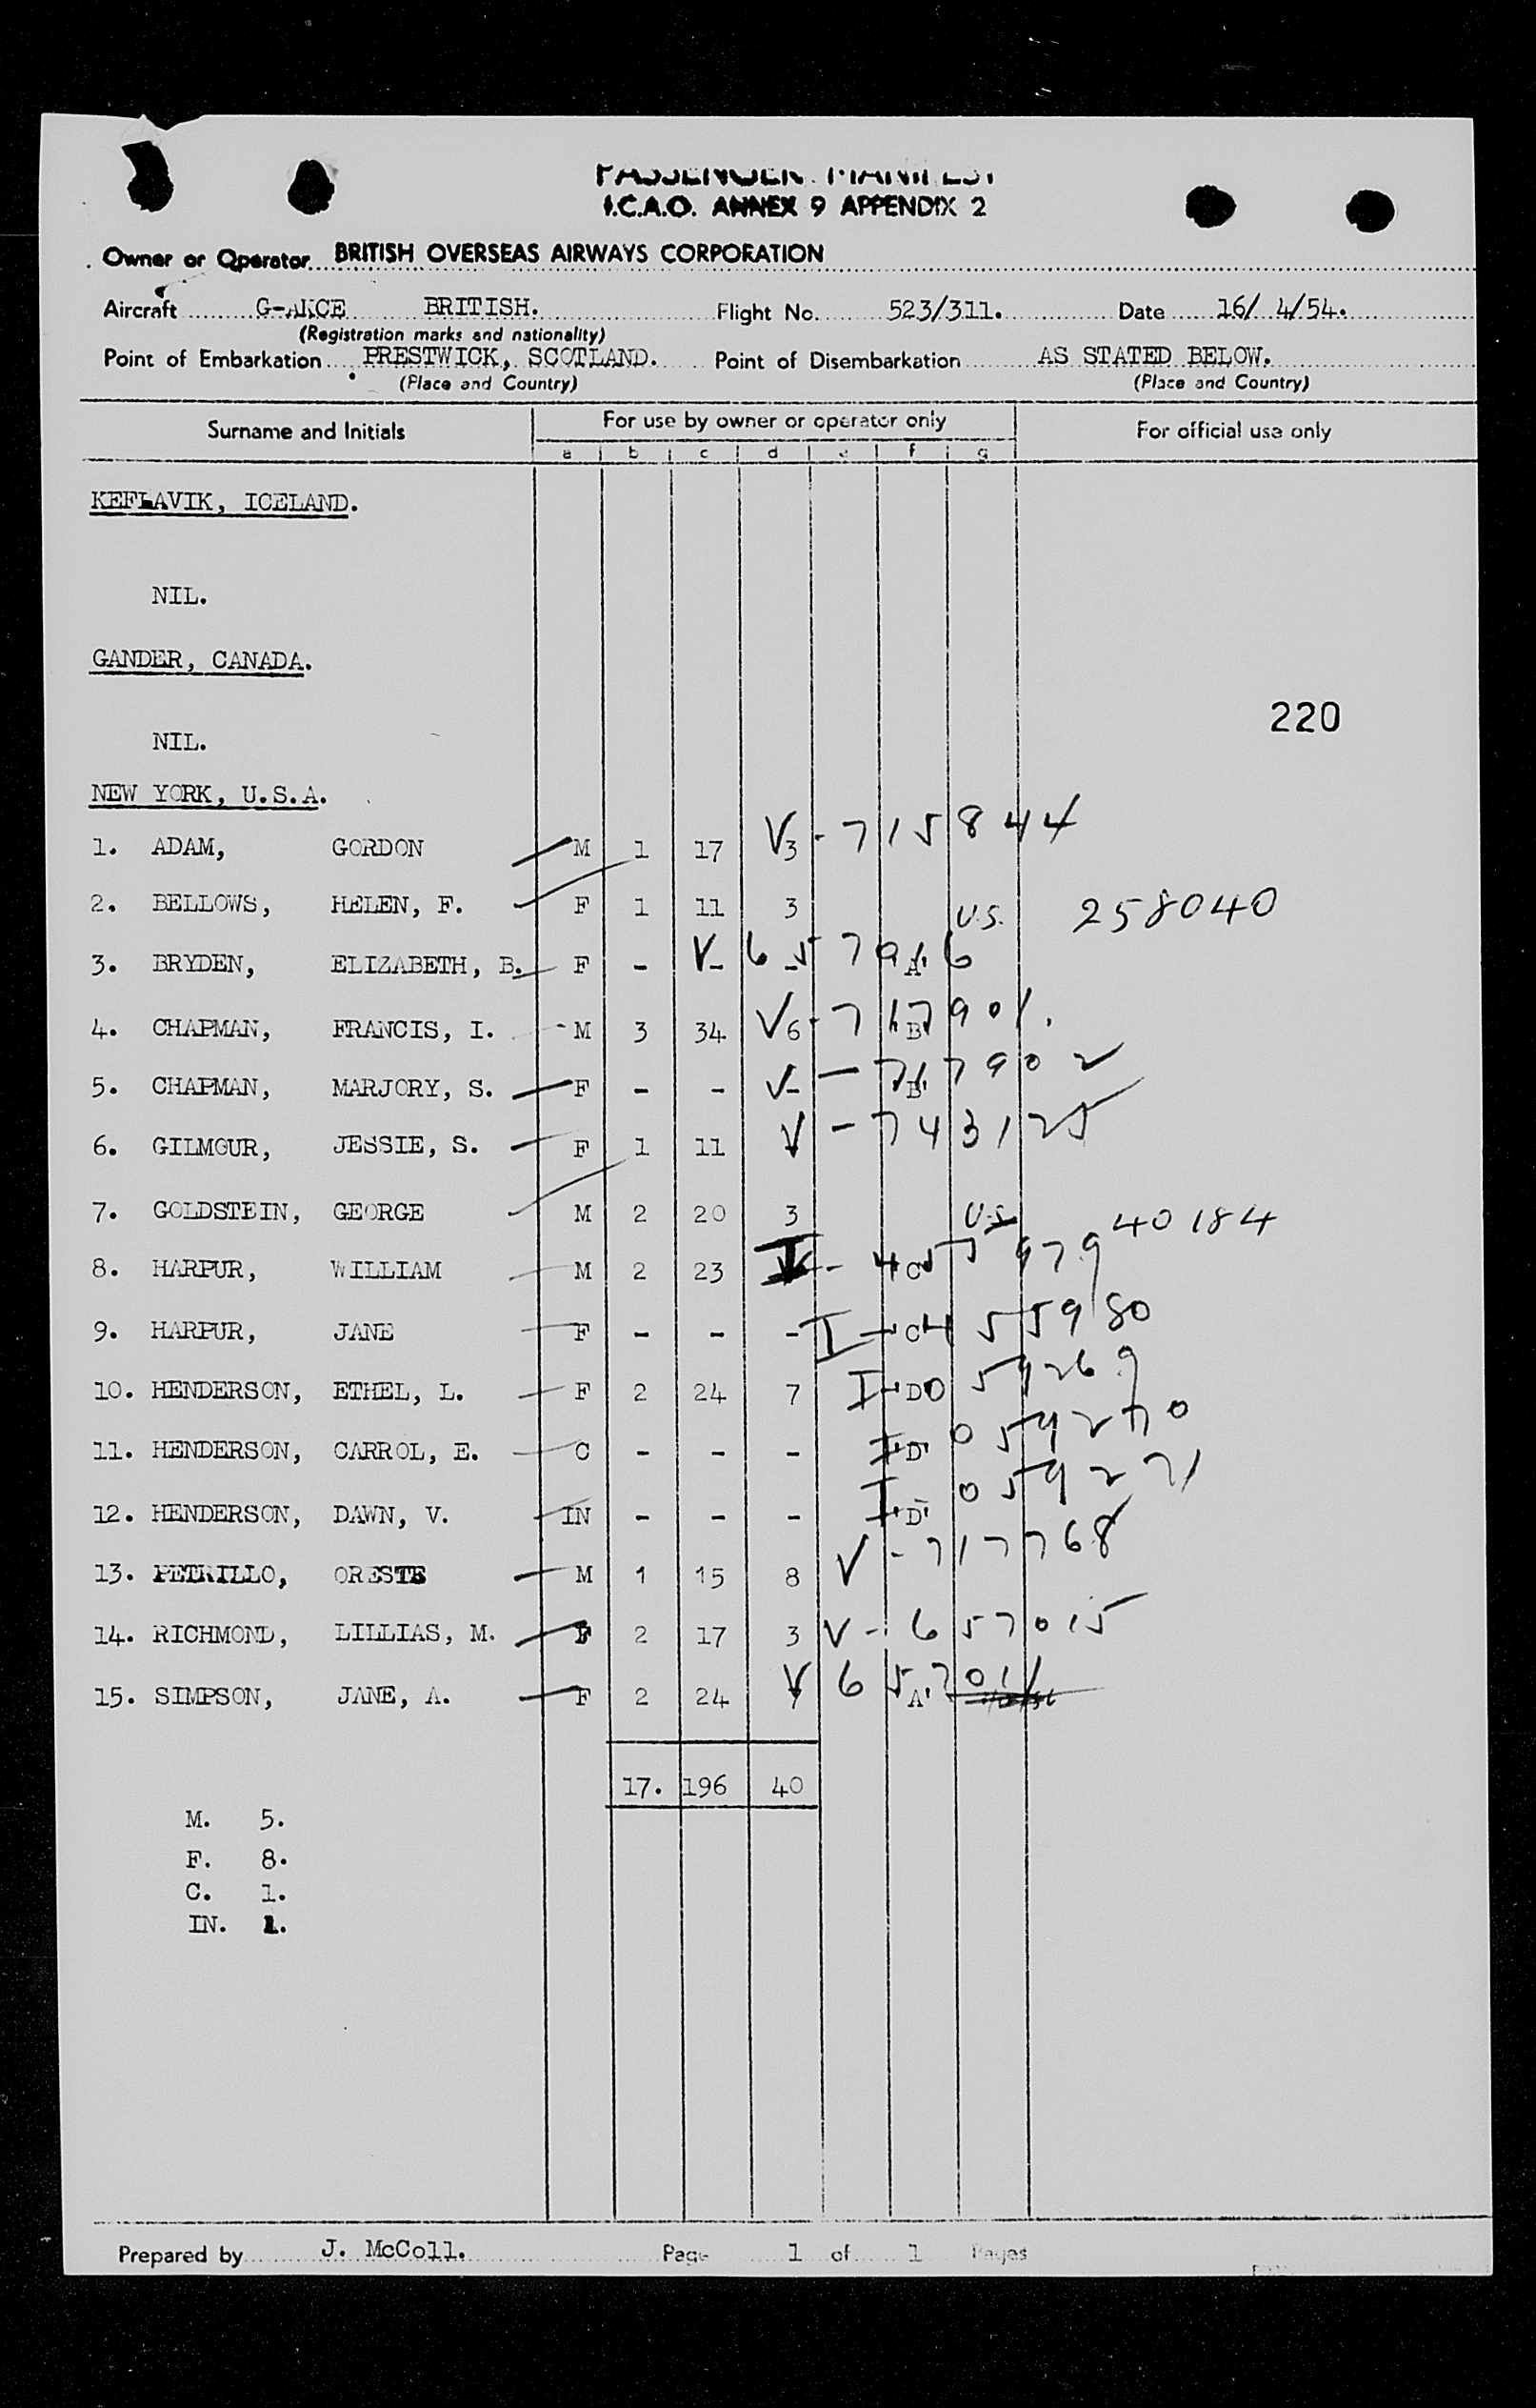 PASSENGER MANIFEST
I.C.A.O. ANNEX 9 APPENDIX 2
Owner or Operator BRITISH OVERSEAS AIRWAYS CORPORATION
Aircraft G-AKCE BRITISH. Flight No. 523/311. Date 16/ 4/54.
(Registration marks and nationality)
Point of Embarkation PRESTWICK, SCOTLAND. Point of Disembarkation AS STATED BELOW.
(Place and Country) (Place and Country)
Surname and Initials For use by owner or operator only For official use only
a b c d e f g
KEFLAVIK, ICELAND.
NIL.
GANDER, CANADA.
220
NIL.
NEW YORK, U.S.A.
1. ADAM, GORDON M 1 17 3 V-715844
2. BELLOWS, HELEN, F. F 1 11 3 U.S. 258040
3. BRYDEN, ELIZABETH, B. F - - - 'A' V
4. CHAPMAN, FRANCIS, I. M 3 34 6 'B' V-717901.
5. CHAPMAN, MARJORY, S. F - - - 'B' V-717902
6. GILMOUR, JESSIE, S. F 1 11 V-743125
7. GOLDSTEIN, GEORGE M 2 20 3 U.S. 40184
8. HARPUR, WILLIAM M 2 23 'C' I-455979
9. HARPUR, JANE F - - - 'C' I-455980
10. HENDERSON, ETHEL, L. F 2 24 7 'D' I-059269
11. HENDERSON, CARROL, E. C - - - 'D' I-059270
12. HENDERSON, DAWN, V. IN - - - 'D' I-059271
13. PETRILLO, ORESTE M 1 15 8 V-717768
14. RICHMOND, LILLIAS, M. F 2 17 3 V-657015
15. SIMPSON, JANE, A. F 2 24 7 'A' V 657011
17. 196 40
M. 5.
F. 8.
C. 1.
IN. 1.
Prepared by J. McColl. Page 1 of 1 Pages